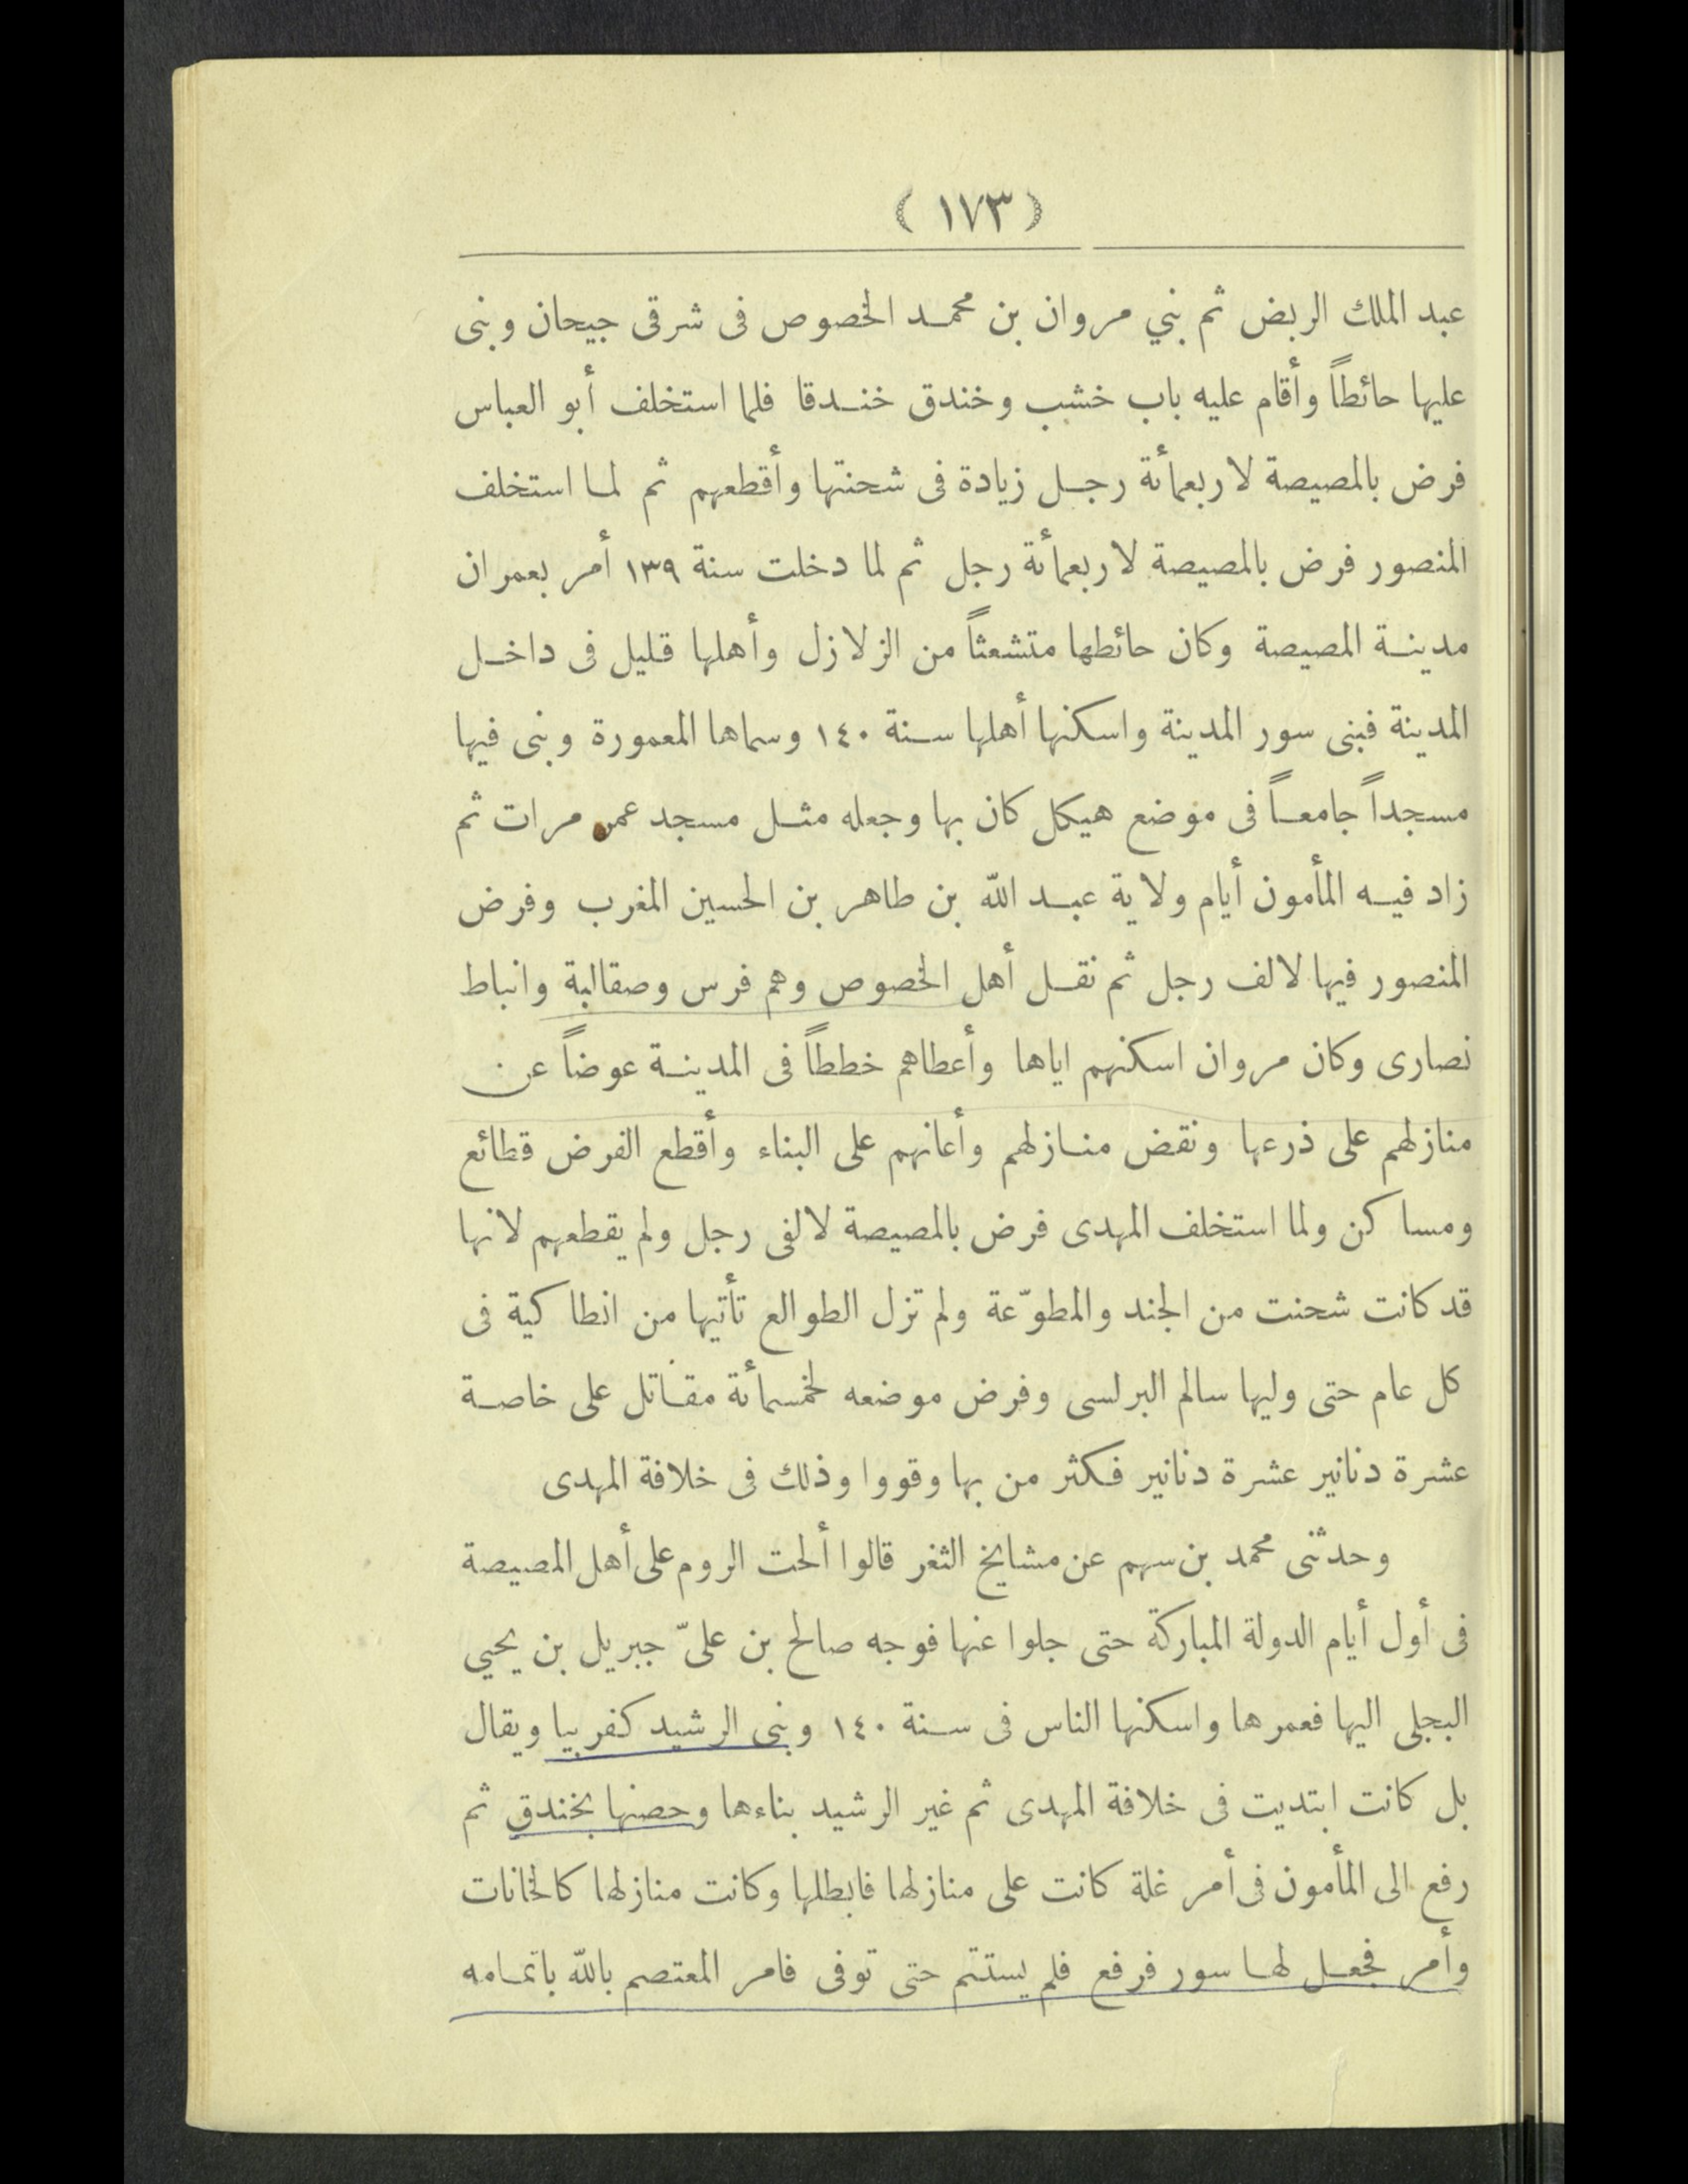 ( ١٧٣ )
عبد الملك الربض ثم بني مروان بن محمد الخصوص فى شرقى جيحان وبنى
عليها حائطاً وأقام عليه باب خشب وخندق خندقا فلما استخلف أبو العباس
فرض بالمصيصة لاربعمأئة رجل زيادة فى شحنتها وأقطعهم ثم لما استخلف
المنصور فرض بالمصيصة لاربعمأئة رجل ثم لما دخلت سنة ١٣٩ أمر بعمران
مدينة المصيصة وكان حائطها متشعثاً من الزلازل وأهلها قليل فى داخل
المدينة فبنى سور المدينة واسكنها أهلها سنة ١٤٠ وسماها المعمورة وبنى فيها
مسجداً جامعاً فى موضع هيكل كان بها وجعله مثل مسجد عمر مرات ثم
زاد فيه المأمون أيام ولاية عبد الله بن طاهر بن الحسين المغرب وفرض
المنصور فيها لالف رجل ثم نقل أهل الخصوص وهم فرس وصقالبة وانباط
نصارى وكان مروان اسكنهم اياها وأعطاهم خططاً فى المدينة عوضاً عن
منازلهم على ذرعها ونقض منازلهم وأعانهم على البناء وأقطع الفرض قطائع
ومساكن ولما استخلف المهدى فرض بالمصيصة لالفى رجل ولم يقطعهم لانها
قد كانت شحنت من الجند والمطوّعة ولم تزل الطوالع تأتيها من انطاكية فى
كل عام حتى وليها سالم البرلسى وفرض موضعه لخمسمأئة مقاتل على خاصة
عشرة دنانير عشرة دنانير فكثر من بها وقووا وذلك فى خلافة المهدى
وحدثنى محمد بن سهم عن مشايخ الثغر قالوا ألحت الروم على أهل المصيصة
فى أول أيام الدولة المباركة حتى جلوا عنها فوجه صالح بن علىّ جبريل بن يحيي
البجلى اليها فعمرها واسكنها الناس فى سنة ١٤٠ وبنى الرشيد كفربيا ويقال
بل كانت ابتديت فى خلافة المهدى ثم غير الرشيد بناءها وحصنها بخندق ثم
رفع الى المأمون فى أمر غلة كانت على منازلها فابطلها وكانت منازلها كالخانات
وأمر فجعل لها سور فرفع فلم يستتم حتى توفى فامر المعتصم بالله باتمامه